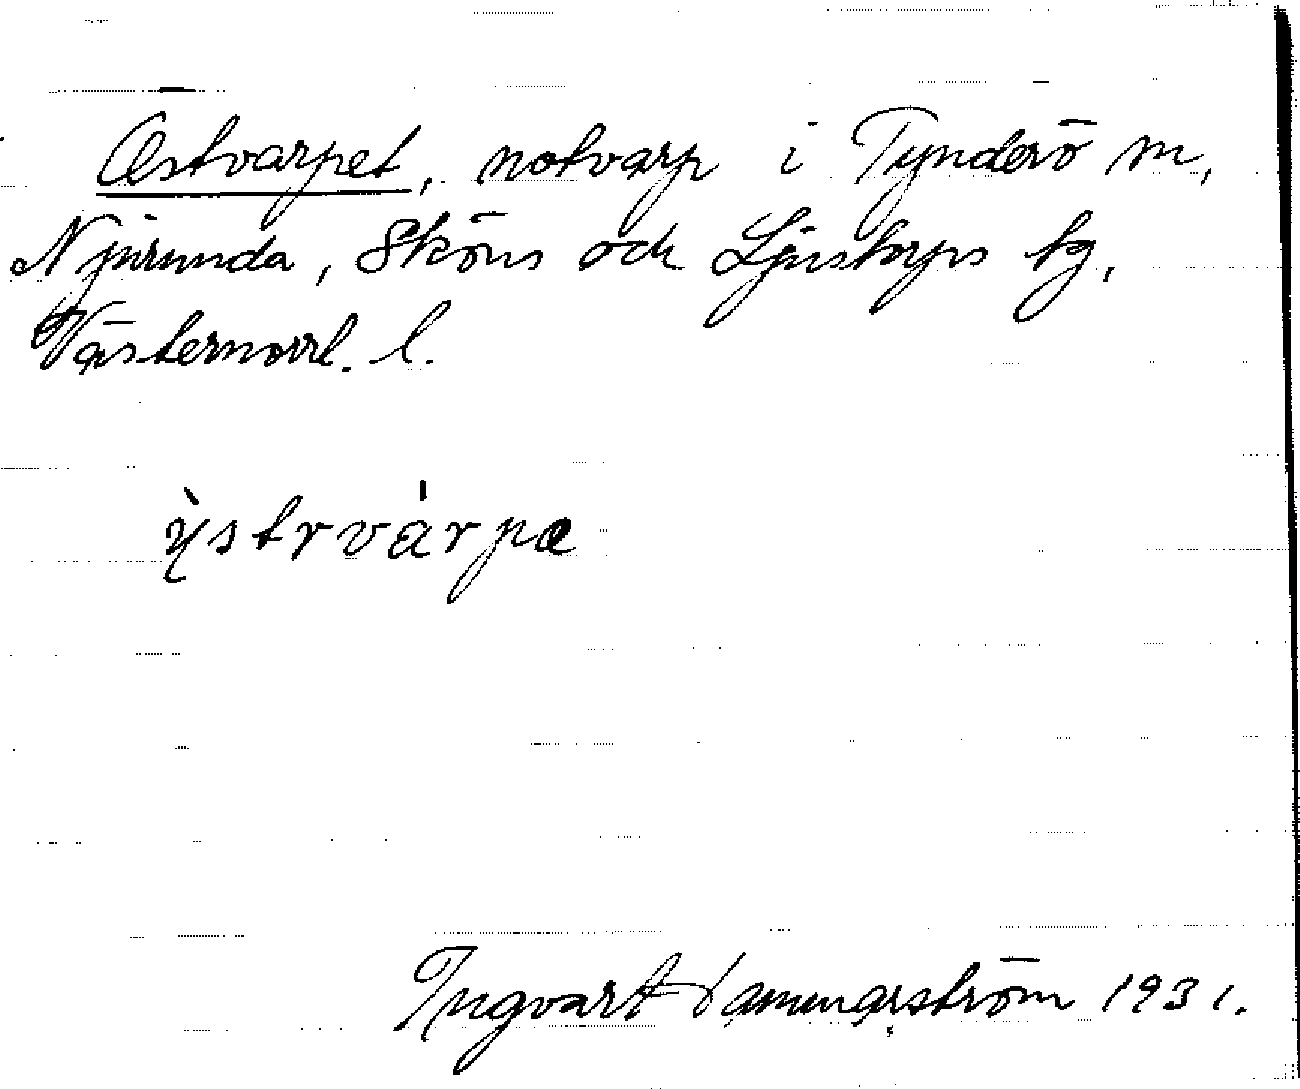 Östvarpet, notvarp i Tynderö sn,
Njurunda, Sköns och Ljustorps tg,
Västernorrl. l.
ỳstrvárpe
Ingvart 1931.